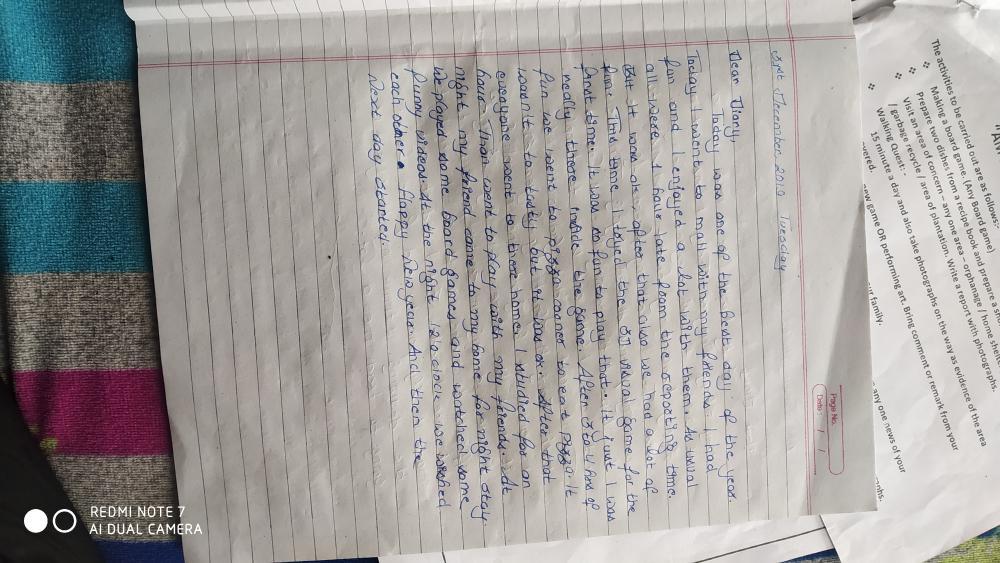 Page No.
Date: / /
31st December 2019 Tuesday
Dear Diary,
Today was one of the best day of the year.
Today I went to mall with my friends I had
fun and I enjoyed a lot with them. As usual
all were 1 hour late from the reporting time.
But it was ok. after that also we had a lot of
fun. This time I tryed the virtual game for the
first time. It was so fun to play that. it just I was
really there inside the game. After 3 to 4 hrs of
fun we went to pizza corner to eat pizza. it
wasn't to tasty but it was ok. After that
everyone went to there home. I studied for an
hour. Then went to play with my friends. At
night my friend came to my home for night stay
we played some board games and watched some
funny videos. At the night 12'o clock we wished
each other a Happy New year. And then the
Next day started.
The activities to be carried out are as follows:-
Making a board game. (Any Board game)
Prepare two dishes from a recipe book and prepare a
Visit an area of concern – any one area – orphanage / home shelter
/ garbage recycle / area of plantation. Write a report with photographs.
Walking Quest: -
15 minute a day and also take photographs on the way as evidence of the area
ered.
new game OR performing art. Bring comment or remark from your
family.
any one news of your
REDMI NOTE 7
AI DUAL CAMERA